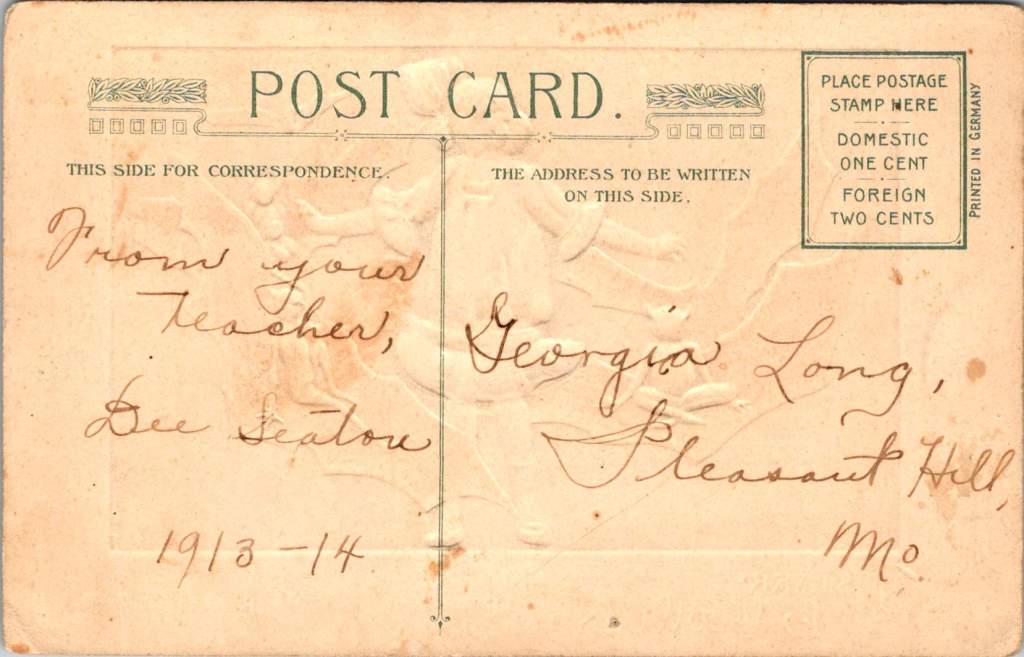 POST CARD.
THIS SIDE FOR CORRESPONDENCE.
THE ADDRESS TO BE WRITTEN
ON THIS SIDE.
PLACE POSTAGE
STAMP HERE
DOMESTIC
ONE CENT
FOREIGN
TWO CENTS
PRINTED IN GERMANY
From your
Teacher,
Dee Seaton
1913-14
Georgia Long,
Pleasant Hill,
Mo.